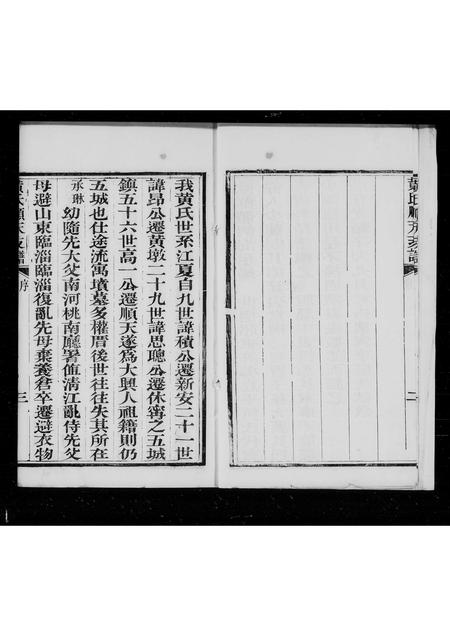 黃氏順天支譜
二
我黃氏世系江夏自九世諱積公遷新安二十一世
諱昂公遷黃墩二十九世諱思聰公遷休寗之五城
鎮五十六世高一公遷順天遂為大興人祖籍則仍
五城也仕途流寓墳墓多權厝後世往往失其所在
承琳幼隨先大父南河桃南廳署值清江亂侍先父
母避山東臨淄臨淄復亂先母棄養倉卒遷避衣物
黃氏順天支譜
序
三